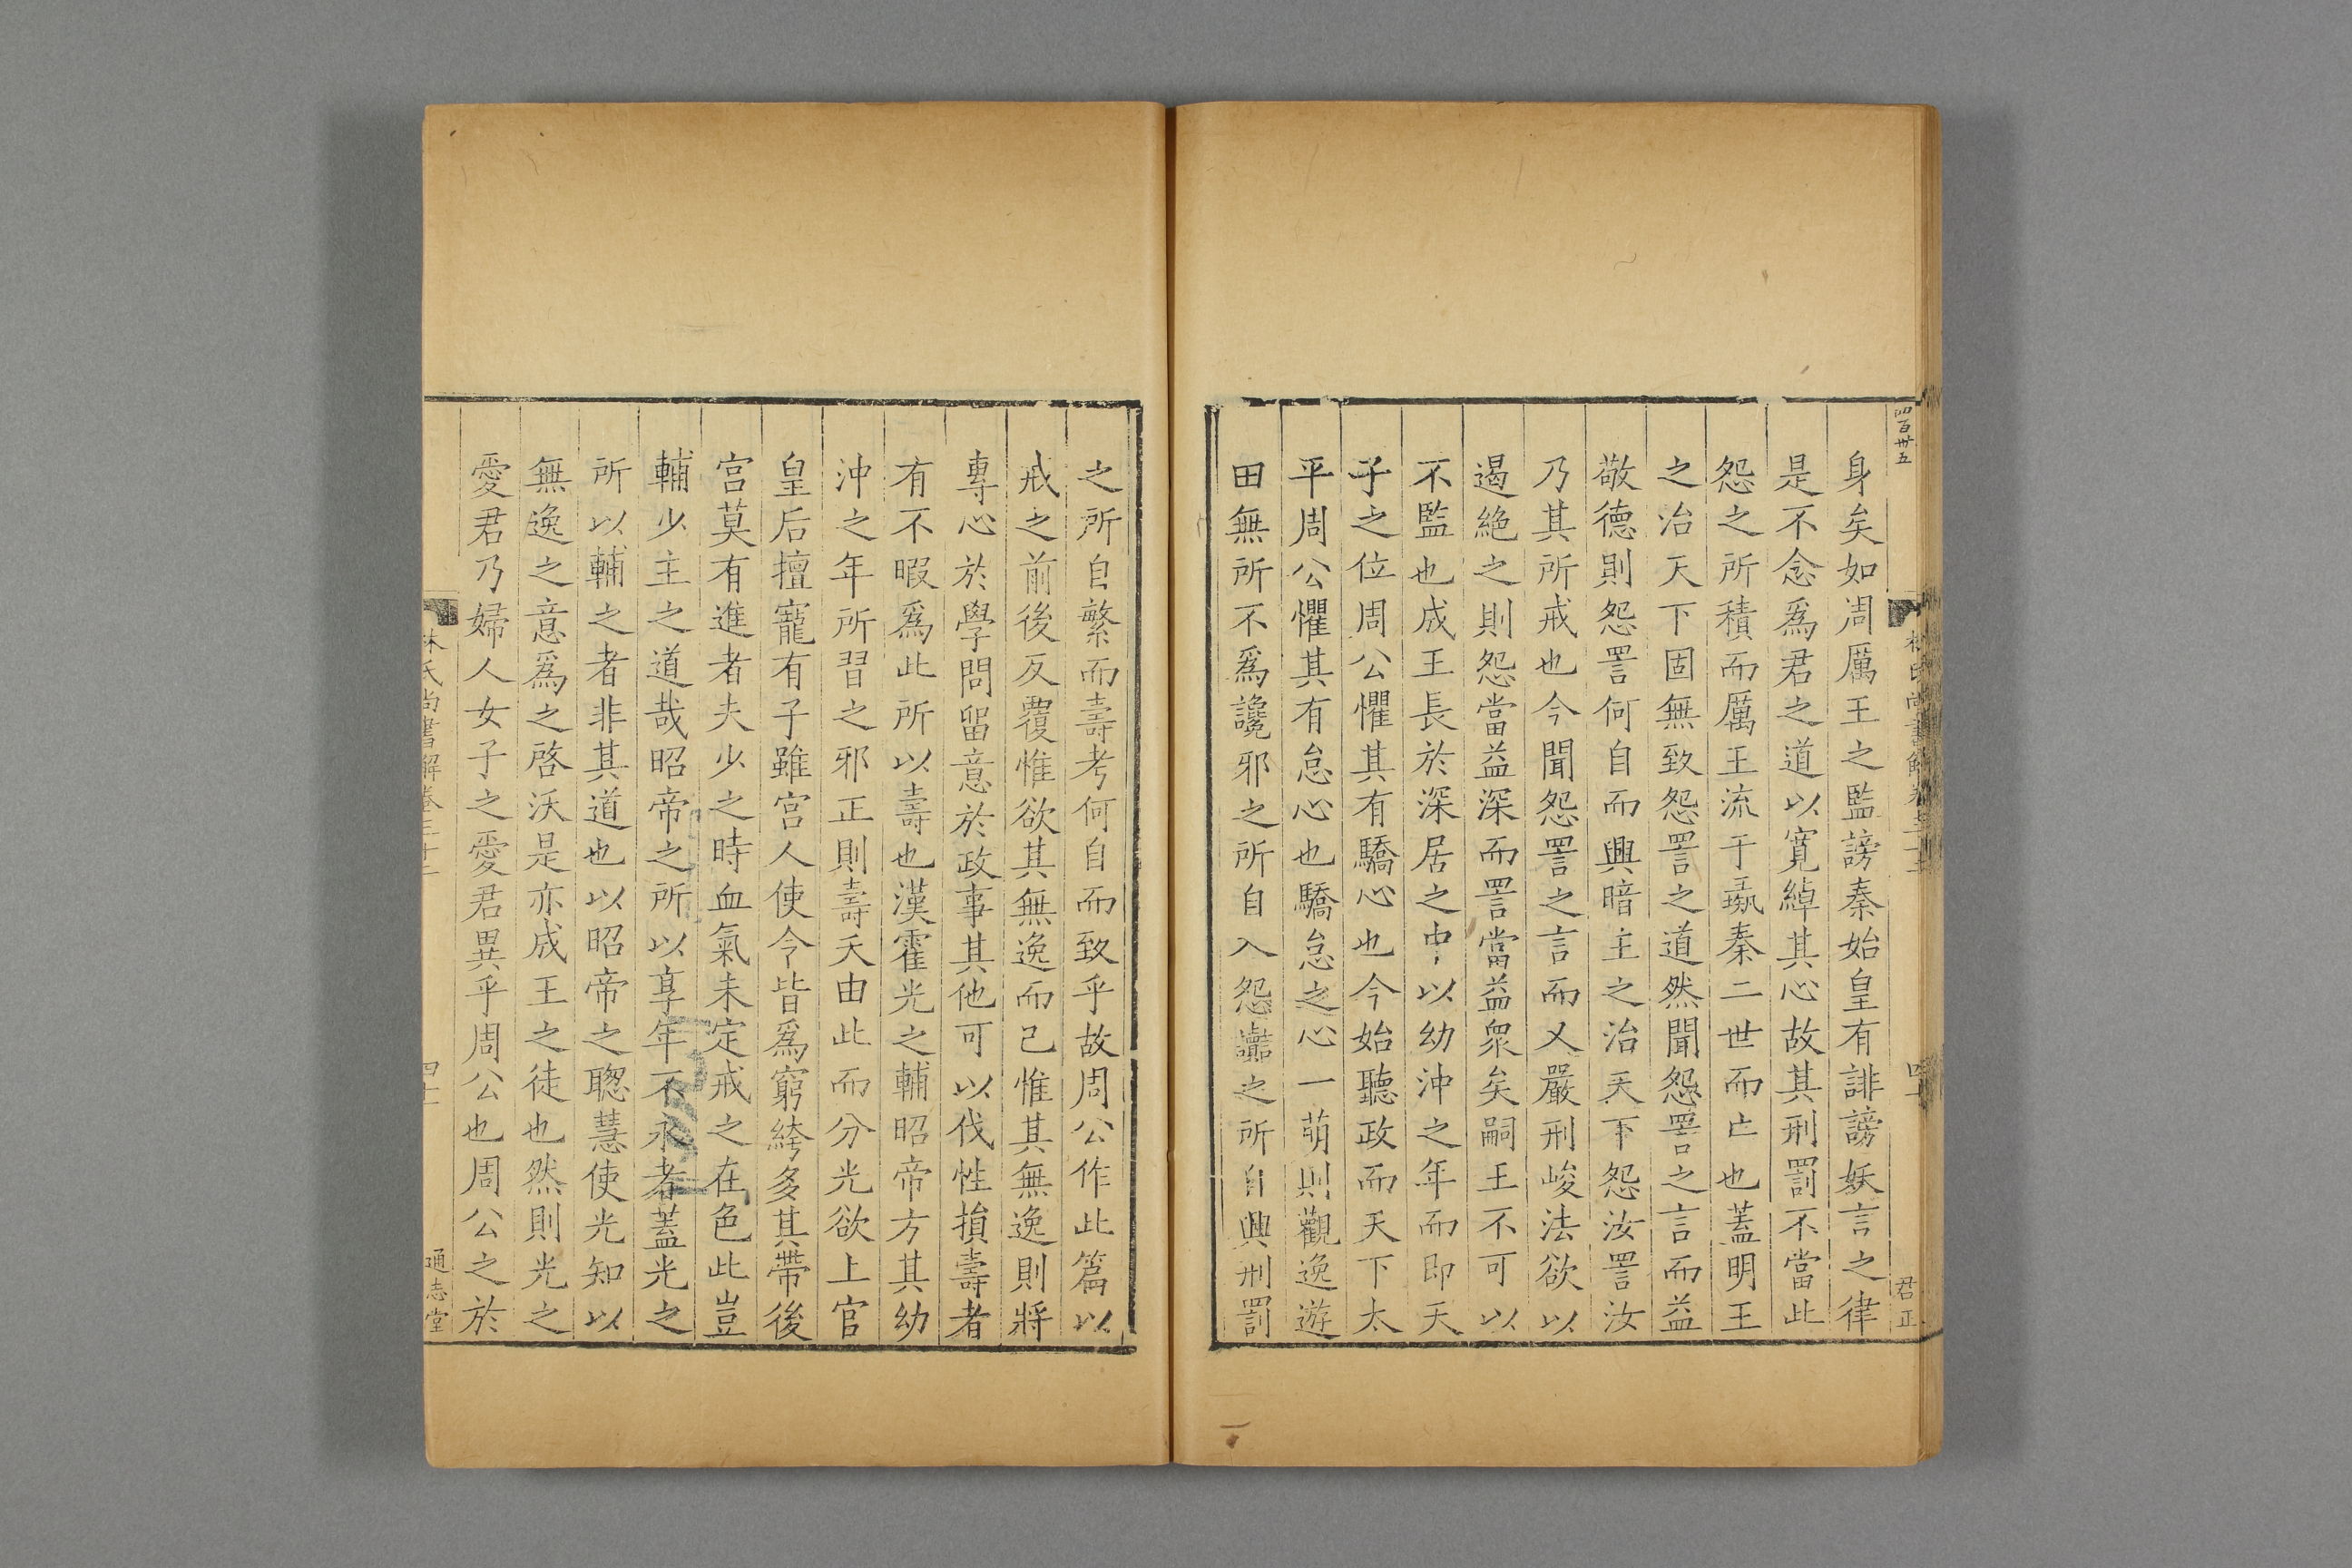 四百卅五
君正
身矣如周厲王之監謗秦始皇有誹謗妖言之律
是不念爲君之道以寬綽其心故其刑罰不當此
怨之所積而厲王流于彘秦二世而亡也蓋明王
之治天下固無致怨詈之道然聞怨詈之言而益
敬德則怨詈何自而興暗主之治天下怨汝詈汝
乃其所戒也今聞怨詈之言而又嚴刑峻法欲以
遏絶之則怨當益深而詈當益衆矣嗣王不可以
不監也成王長於深居之中以幼沖之年而即天
子之位周公懼其有驕心也今始聽政而天下太
平周公懼其有怠心也驕怠之心一萌則觀逸遊
田無所不爲讒邪之所自入怨讟之所自興刑罰
之所自繁而壽考何自而致乎故周公作此篇以
戒之前後反覆惟欲其無逸而已惟其無逸則將
專心於學問留意於政事其他可以伐性損壽者
有不暇爲此所以壽也漢霍光之輔昭帝方其幼
沖之年所習之邪正則壽夭由此而分光欲上官
皇后擅寵有子雖宮人使令皆爲窮絝多其帶後
宮莫有進者夫少之時血氣未定戒之在色此豈
輔少主之道哉昭帝之所以享年不永者蓋光之
所以輔之者非其道也以昭帝之聰慧使光知以
無逸之意爲之啓沃是亦成王之徒也然則光之
愛君乃婦人女子之愛君異乎周公也周公之於
林氏尚書解卷三十二
四十一
通志堂